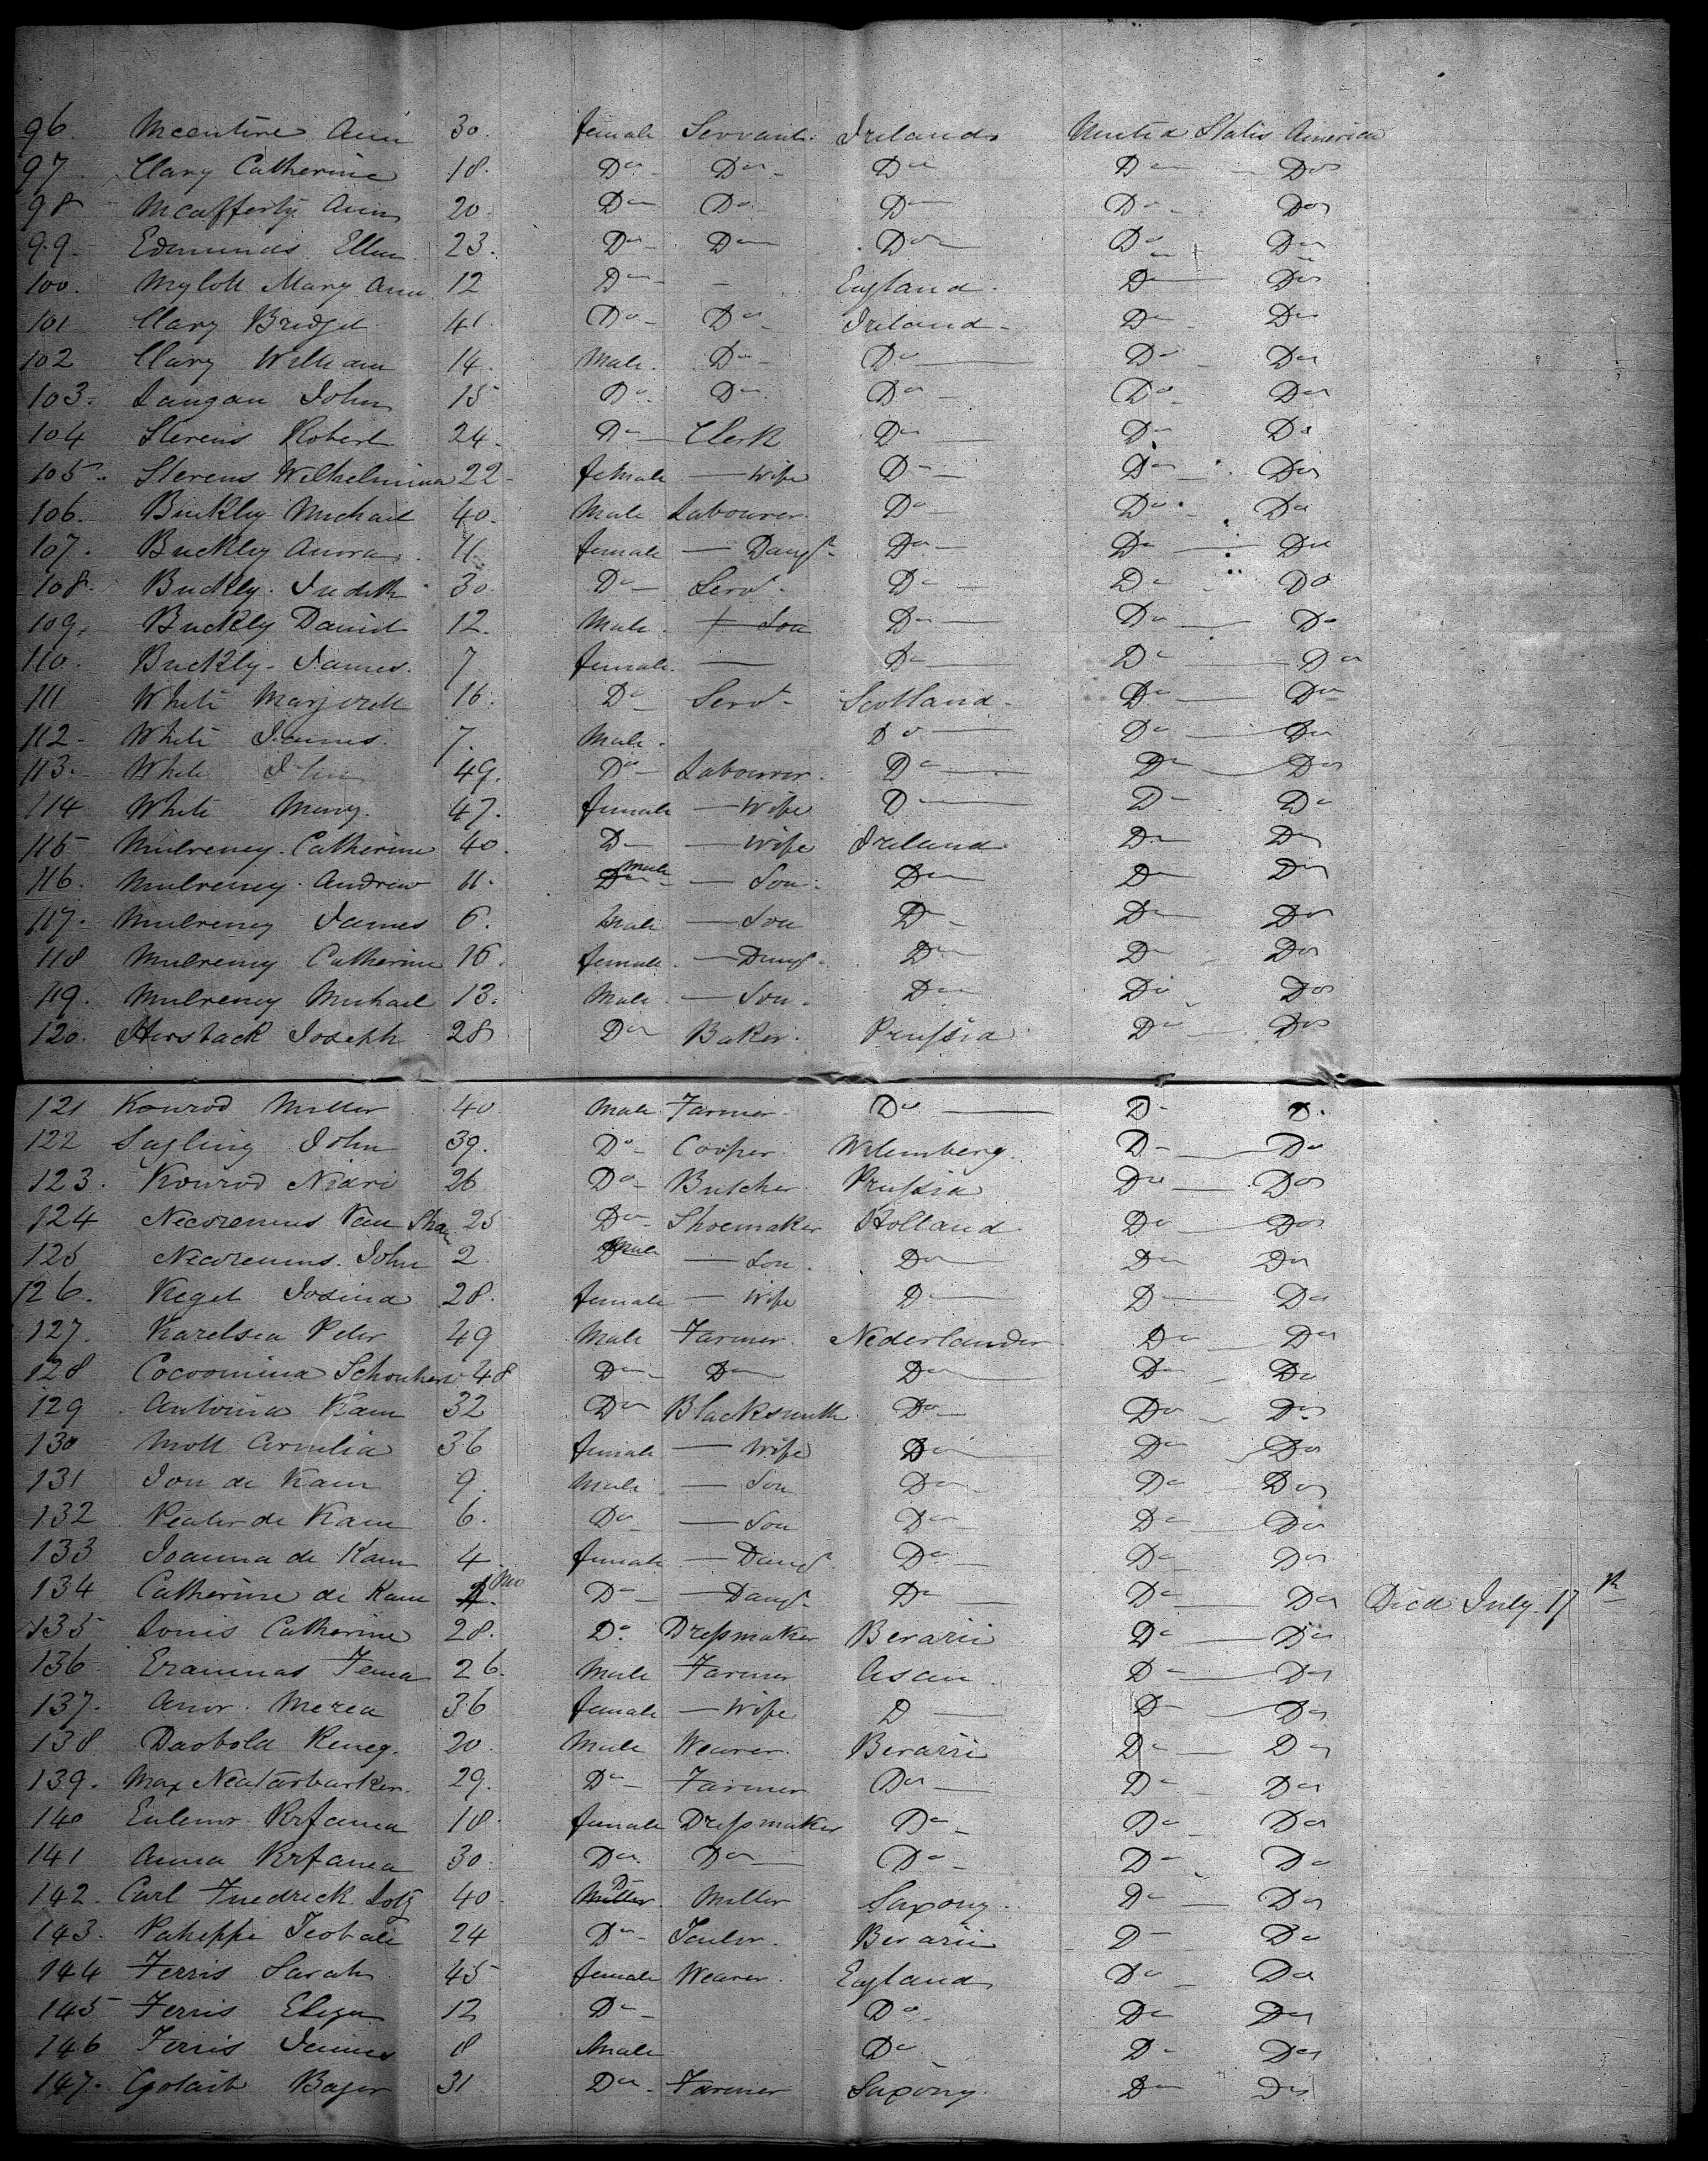 96. Mcentire Ann 30. female Servant. Ireland United States America
97 Clary Catherine 18. Do Do Do Do Do
98 Mcafferty Ann 20. Do Do Do Do Do
99. Edmunds Ellen 23. Do Do Do Do Do
100. Mylott Mary Ann 12 Do - England. Do Do
101 Clary Bridget 41. Do Do Ireland Do Do
102 Clary William 14. Male. Do Do Do Do
103. Langan John 15 Do Do Do Do Do
104 Sterens Robert 24. Do Clerk Do Do Do
105. Sterens Wilhelmina 22 female — Wife Do Do Do
106. Buckley Michael 40. Male Labourer. Do Do Do
107. Buckley 11. female — Daugt Do Do Do
108. Buckley. Judith 30. Do Servt. Do Do Do
109. Buckley David 12. Male. Son Do Do Do
110. Buckley. James. 7 female. — Do Do Do
111 White 16. Do Servt Scotland Do Do
112 White James. 7. Male. Do Do Do
113. White John 49. Do Labourer. Do Do Do
114 White Mary. 47. female — Wife Do Do Do
115 Mulreney. Catherine 40. Do — Wife Ireland Do Do
116. Mulreney. Andrew 11. Male — Son. Do Do Do
117. Mulreney James 6. Male — Son Do Do Do
118 Mulreney Catherine 16. female. — Daugt. Do Do Do
119. Mulreney Michael 13. Male. — Son. Do Do Do
120. Hersback Joseph 28 Do Baker. Prussia Do Do
121 Konrod Miller 40. Male Farmer. Do Do Do.
122 Sagling John 39. Do Cooper. Wtemberg. Do Do
123. Konrod Nidri 26 Do Butcher Prussia Do Do
124 Van 25 Do Shoemaker Holland Do Do
125 John 2. Male — Son. Do Do Do
126. Kegel Josina 28. female — Wife Do Do Do
127. Karelsea Peter 49 Male Farmer. Nederlander Do Do
128 Cocoomina 48 Do Do Do Do Do
129 Antonia Kam 32 Do Blacksmith. Do Do Do
130 Mott Cornelia 36 female — Wife Do Do Do
131 Jon de Kam 9. Male — Son Do Do Do
132 Peater de Kam 6. Do — Son Do Do Do
133 Joanna de Kam 4 female. — Daugt. Do Do Do
134 Catherine de Kam Mo Do — Daugt Do Do Do Died July 17
135 Louis Catherine 28. Do. Dressmaker Berarii Do Do
136 Erammas Tema 26. Male Farmer Asan. Do Do
137. Anor. Merea 36 female — Wife D Do Do
138 Daobold Reneg. 20. Male Wearer. Berarri Do Do
139. Max Neatarbarker. 29. Do Farmer Do Do Do
140 Krfamea 18. female Dressmaker Do Do Do
141 Anna Krfamea 30. Do. Do Do Do Do
142. Carl Fredrick Lotz 40. Do Miller Saxony. Do Do
143. Paheppe Teobale 24 Do Tailor. Berarii Do Do
144 Ferris Sarah 45 female Wearer. England Do Do
145 Ferris Eliza 12 Do Do. Do Do
146 Ferris James 8 Male Do Do Do
147. Golaib Bajer 31 Do Farmer Saxony. Do Do